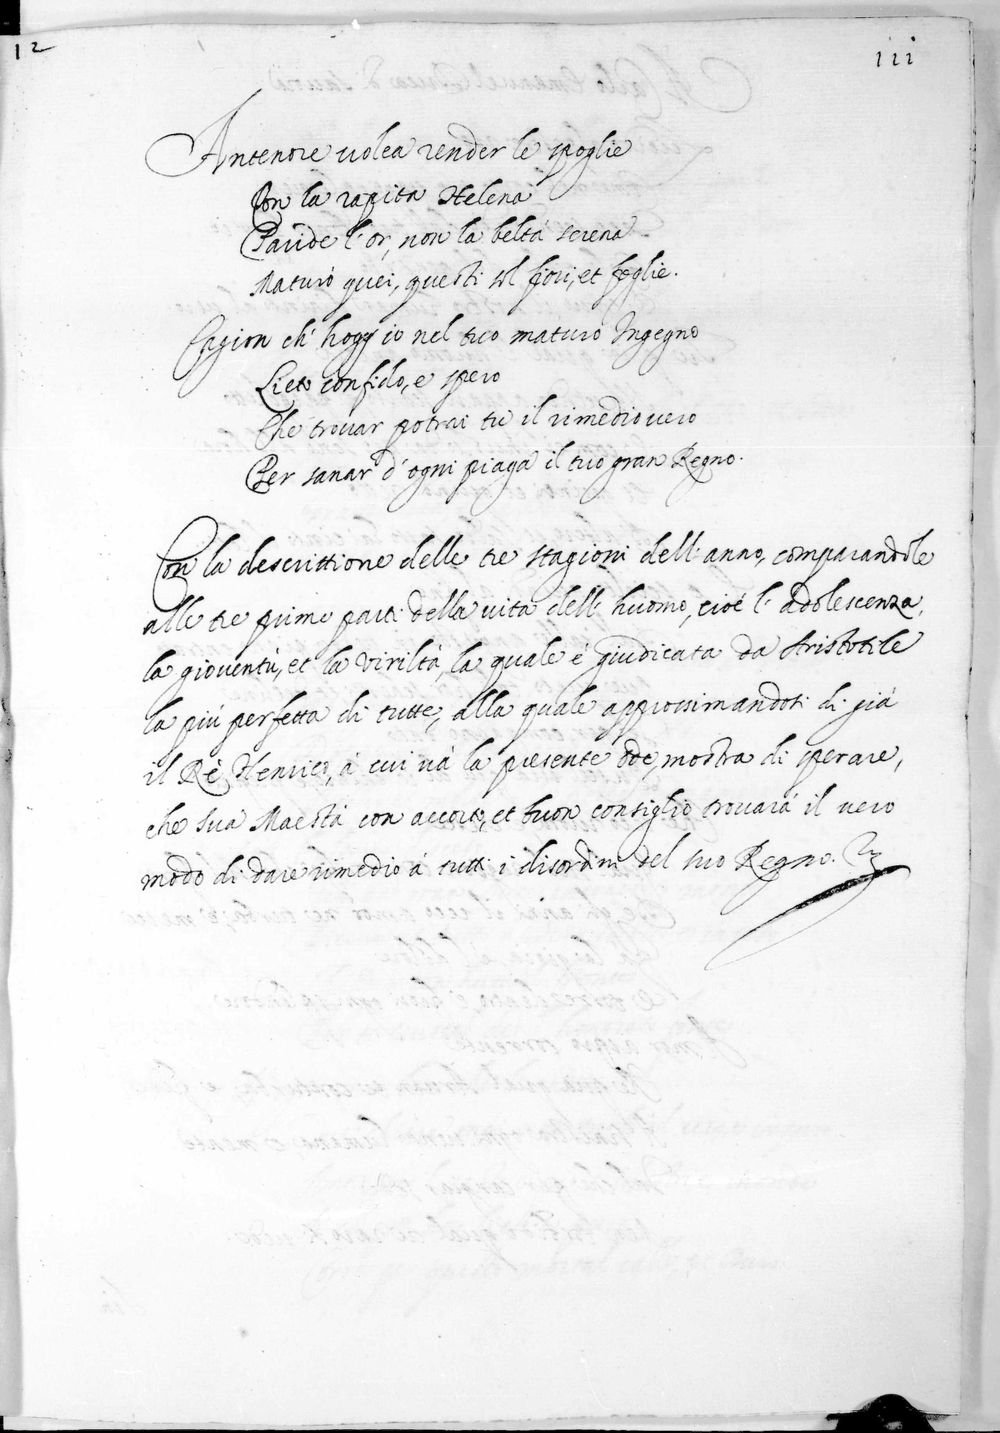 12
111
Antenore volea render le spoglie
Con la rapita Helena
Paride l'or, non la beltá serena
Maturò quei, questi sol fiori, et foglie.
Cagion ch' hoggi io nel tuo maturo Ingegno
Lieto confido, e spero
Che trovar potrai tu il rimedio vero
Per sanar d' ogni piaga il tuo gran Regno.
Con la descrittione delle tre stagioni dell' anno, comparandole
alle tre prime parti della vita dell' huomo, cioé l' adolescenza,
la gioventù, et la virilità, la quale é giudicata da Aristotile
la più perfetta di tutte, alla quale approssimandoti di giá
il Rè Henrico, á cui vá la presente Ode, mostra di sperare,
che sua Maestá con accorto, et buon consiglio trovará il vero
modo di dare rimedio á tutti i disordini del suo Regno.